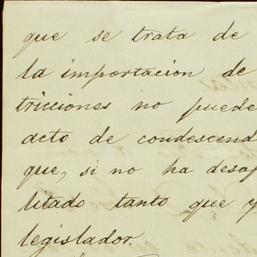 que se trata de
la importacion de
tricciones no puede
acto de condescend
que, si no ha desap
litado tanto que y
legislador.